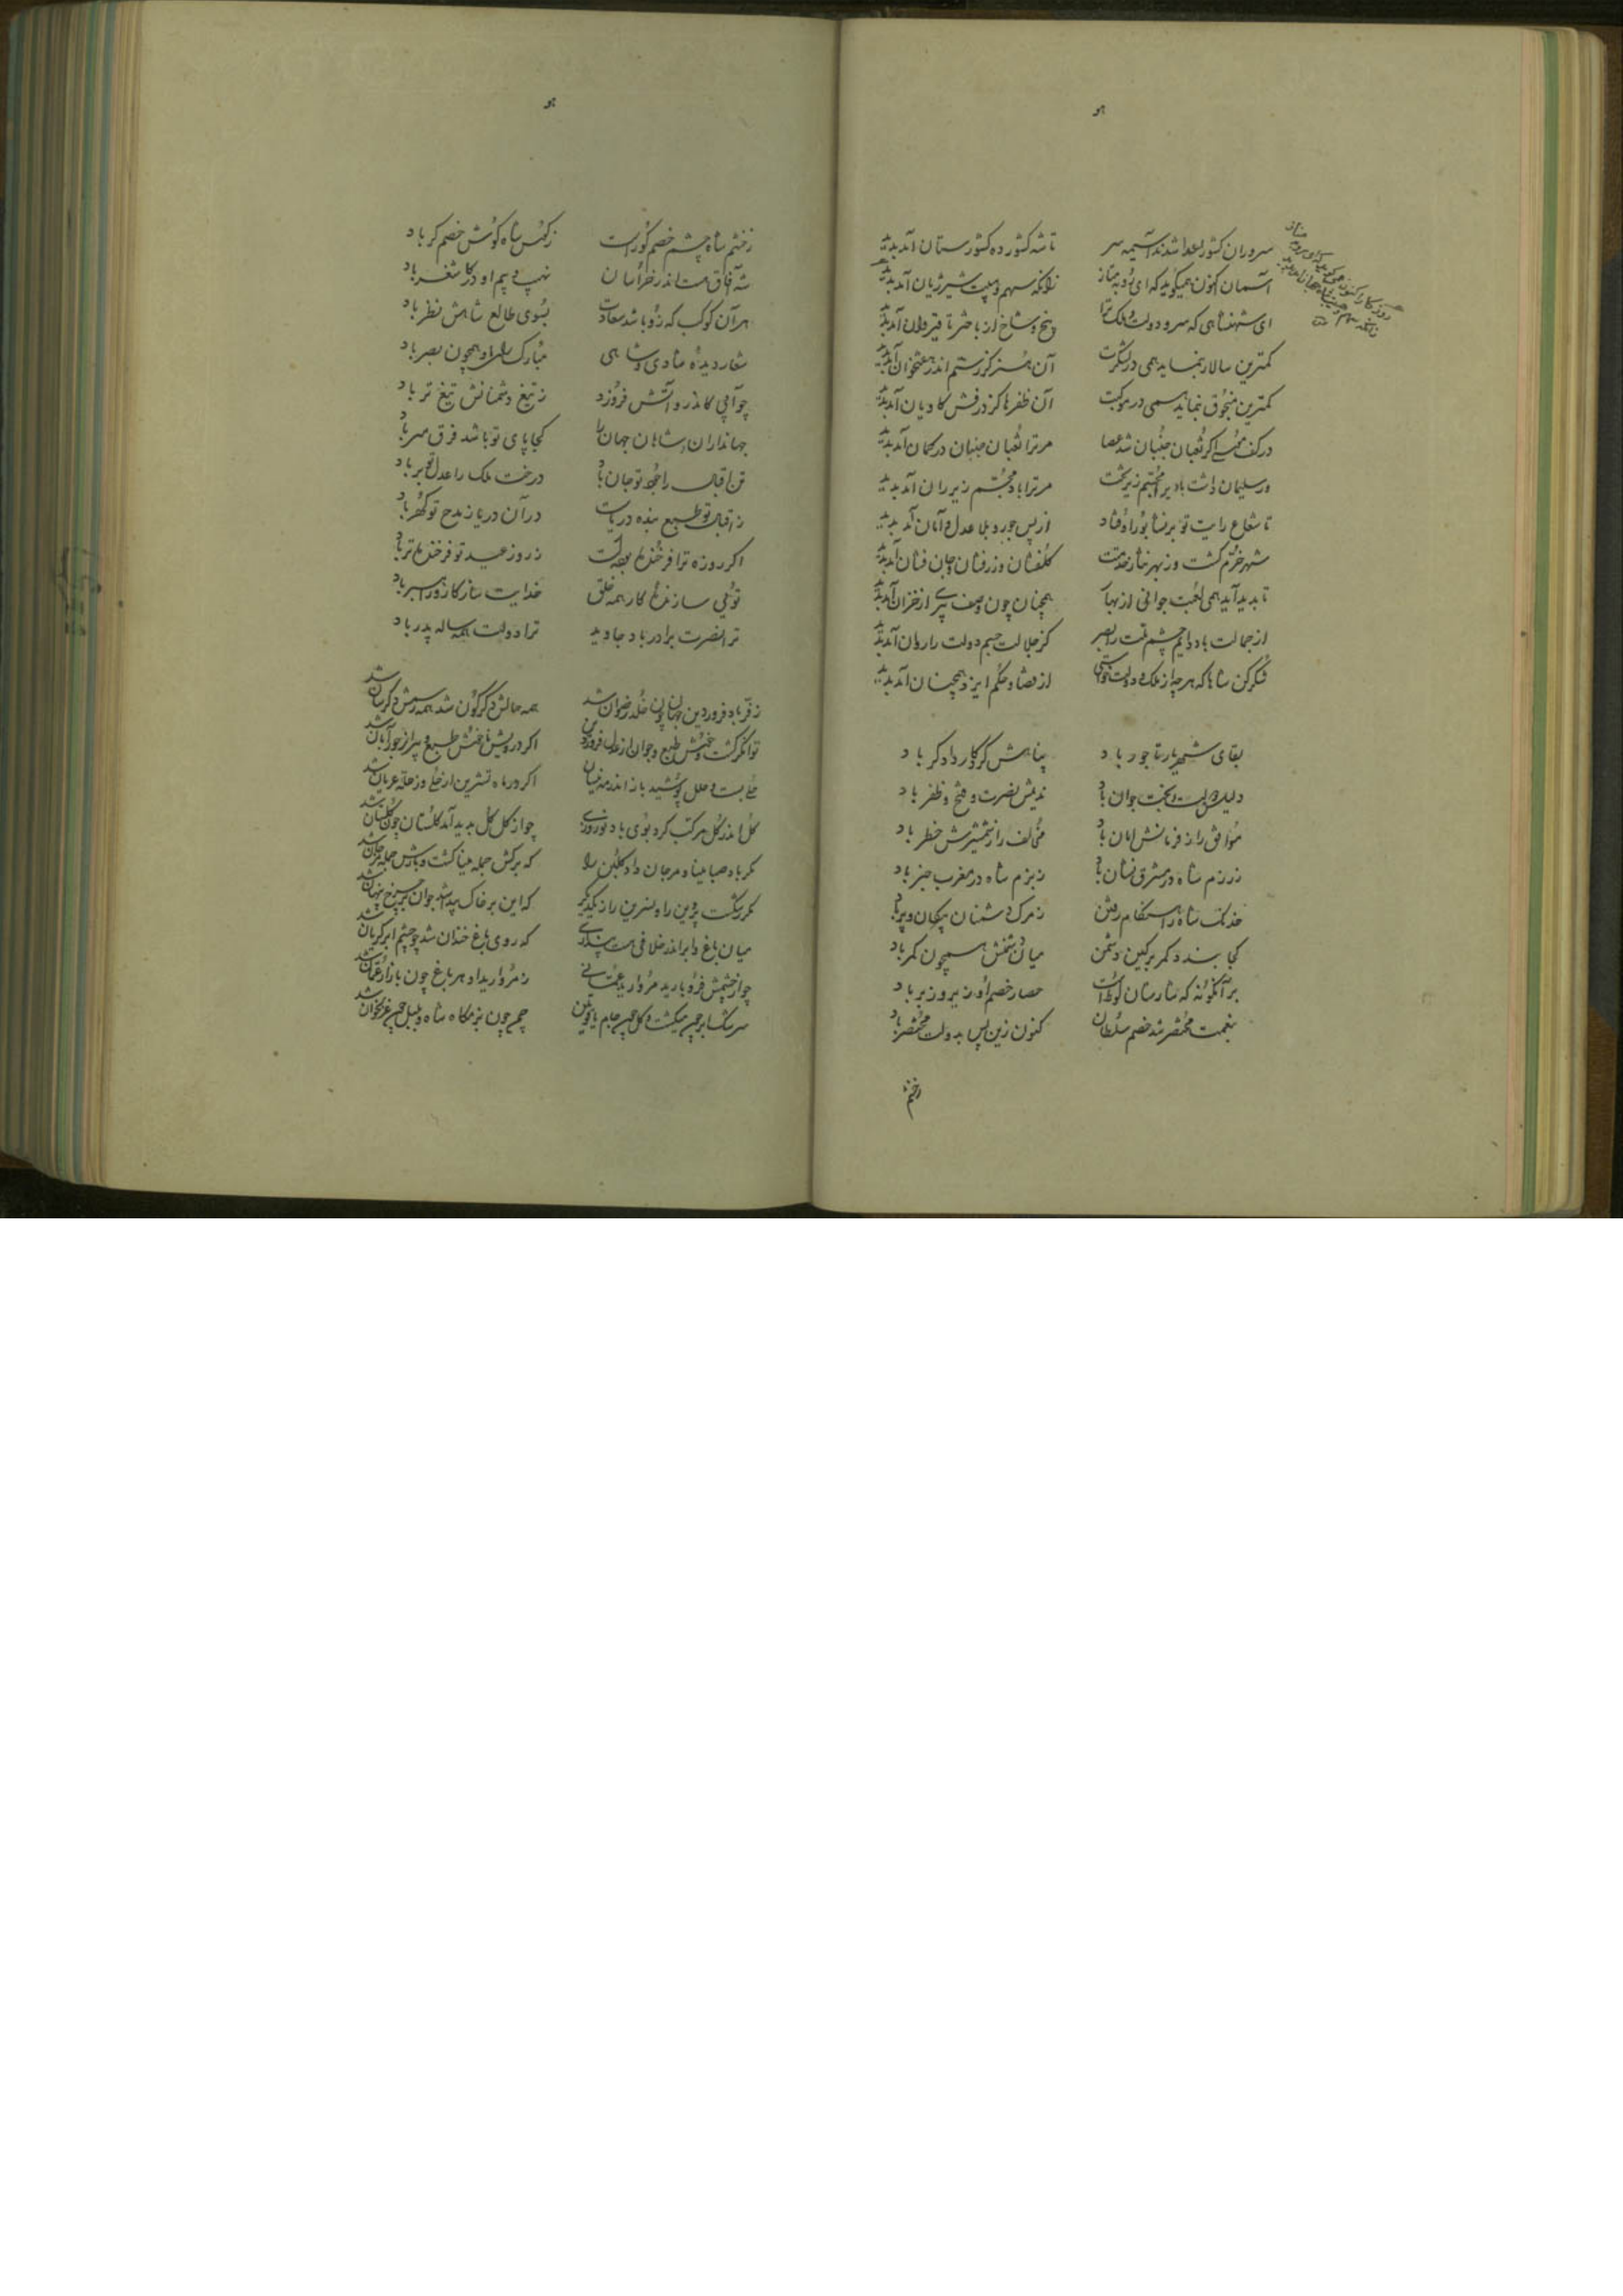 هو
سروران کشور اعدا شدند آسیمه سر تا شه کشور ده کشور ستان آمد پدید
آسمان اکنون همیگوید که ای روبه مناز زانکه سهم و هیبت شیر ژیان آمد پدید
ای شهنشاهی که سرو دولت و ملک ترا بیخ و شاخ از باختر تا قیروان آمد پدید
کمترین سالار بنماید همی در لشکرت آن هنر کز رستم اندر هفتخوان آمد پدید
کمترین منجوق بنماید همی در موکبت آن ظفرها کز درفش کاویان آمد پدید
در کف موسی اگر ثعبان جنبان شد عصا مر ترا ثعبان جنبان در کمان آمد پدید
ور سلیمان داشت باد بر مجسم زیر تخت مر ترا باد مجسم زیر ران آمد پدید
تا شعاع رایت تو بر نشابور اوفتاد از پس جور و بلا عدل و امان آمد پدید
شهر خرم گشت وز بهر نثار خدمتت گلفشان و زرفشان و جان فشان آمد پدید
تا پدید آید همی لعبت جوانی از بهار همچنان چون وصف پیری از خزان آمد پدید
از جمالت باد دایم چشم ملت را بصر کز جلالت جسم دولت را روان آمد پدید
شکر کن شاها که هر چه از ملک و دولت خواستی از قضا و حکم ایزد همچنان آمد پدید
بقای شهریار تاجور باد پناهش کردگار دادگر باد
دلیلش دولت و بخت جوان باد ندیمش نصرت و فتح و ظفر باد
موافق را ز فرمانش امان باد مخالف را ز شمشیرش خطر باد
ز رزم شاه در مشرق نشان باد ز بزم شاه در مغرب خبر باد
خدنگ شاه را هنگام رفتن ز مرگ دشمنان پیکان و پر باد
کجا بندد کمر بر کین دشمن میان دشمنش همچون کمر باد
بر آنگونه که شارستان لوط است حصار خصم او زیر و زبر باد
بنعمت مختصر شد خصم سلطان کنون زین پس بدولت مختصر باد
زخشم
هو
زخشم شاه چشم خصم کور است ز کوس شاه گوش خصم کر باد
شه آفاق هست اندر خراسان نهیب و بیم او در کاشغر باد
هر آن کوکب که زو باشد سعادت بسوی طالع شاهش نظر باد
شعار دیده شادی و شاهی مبارک رای او همچون بصر باد
چو آبی کاندرو آتش فروزد ز تیغ دشمنانش تیغ تر باد
جهانداران و شاهان جهان را کجا پای تو باشد فرق سر باد
تن اقبال را جود تو جان باد درخت ملک را عدل تو بر باد
ز اقبال تو طبع بنده دریاست در آن دریا ز مدح تو گهر باد
اگر روزه ترا فرخنده بوده است ز روز عید تو فرخنده تر باد
توئی سازنده کار همه خلق خدایت ساز کار و راهبر باد
ترا نصرت برادر باد جاوید ترا دولت همه ساله پدر باد
ز فر باد فروردین جهان چون خلد رضوان شد همه حالش دگرگون شد همه رسمش دگرسان شد
توانگر گشت و خوش طبع و جوان از عدل فروردین اگر درویش و ناخوش طبع و پیر از جور آبان شد
حلی بست و حلل پوشید باز اندر مه نیسان اگر در ماه تشرین از حلی وز حله عریان شد
گل اندر گل مرکب کرد بوی باد نوروزی چو از گل گل پدید آمد گلستان چون گلستان شد
مگر باد صبا مینا و مرجان داد گلبن را که برگش جمله مینا گشت و بارش جمله مرجان شد
مگر نگشت پروین را و نسرین را ز یکدیگر که این بر خاک پیدا شد چو آن بر چرخ پنهان شد
میان باغ و ابر اندر خلافی هست پنداری که روی باغ خندان شد چو چشم ابر گریان شد
چو از چشمش فرو بارید مروارید عمانی ز مروارید او هر باغ چون بازار عمان شد
سرشک ابر چون میگشت و گل چون جام یاقوتین چمن چون بزمگاه شاه و بلبل چون غزلخوان شد